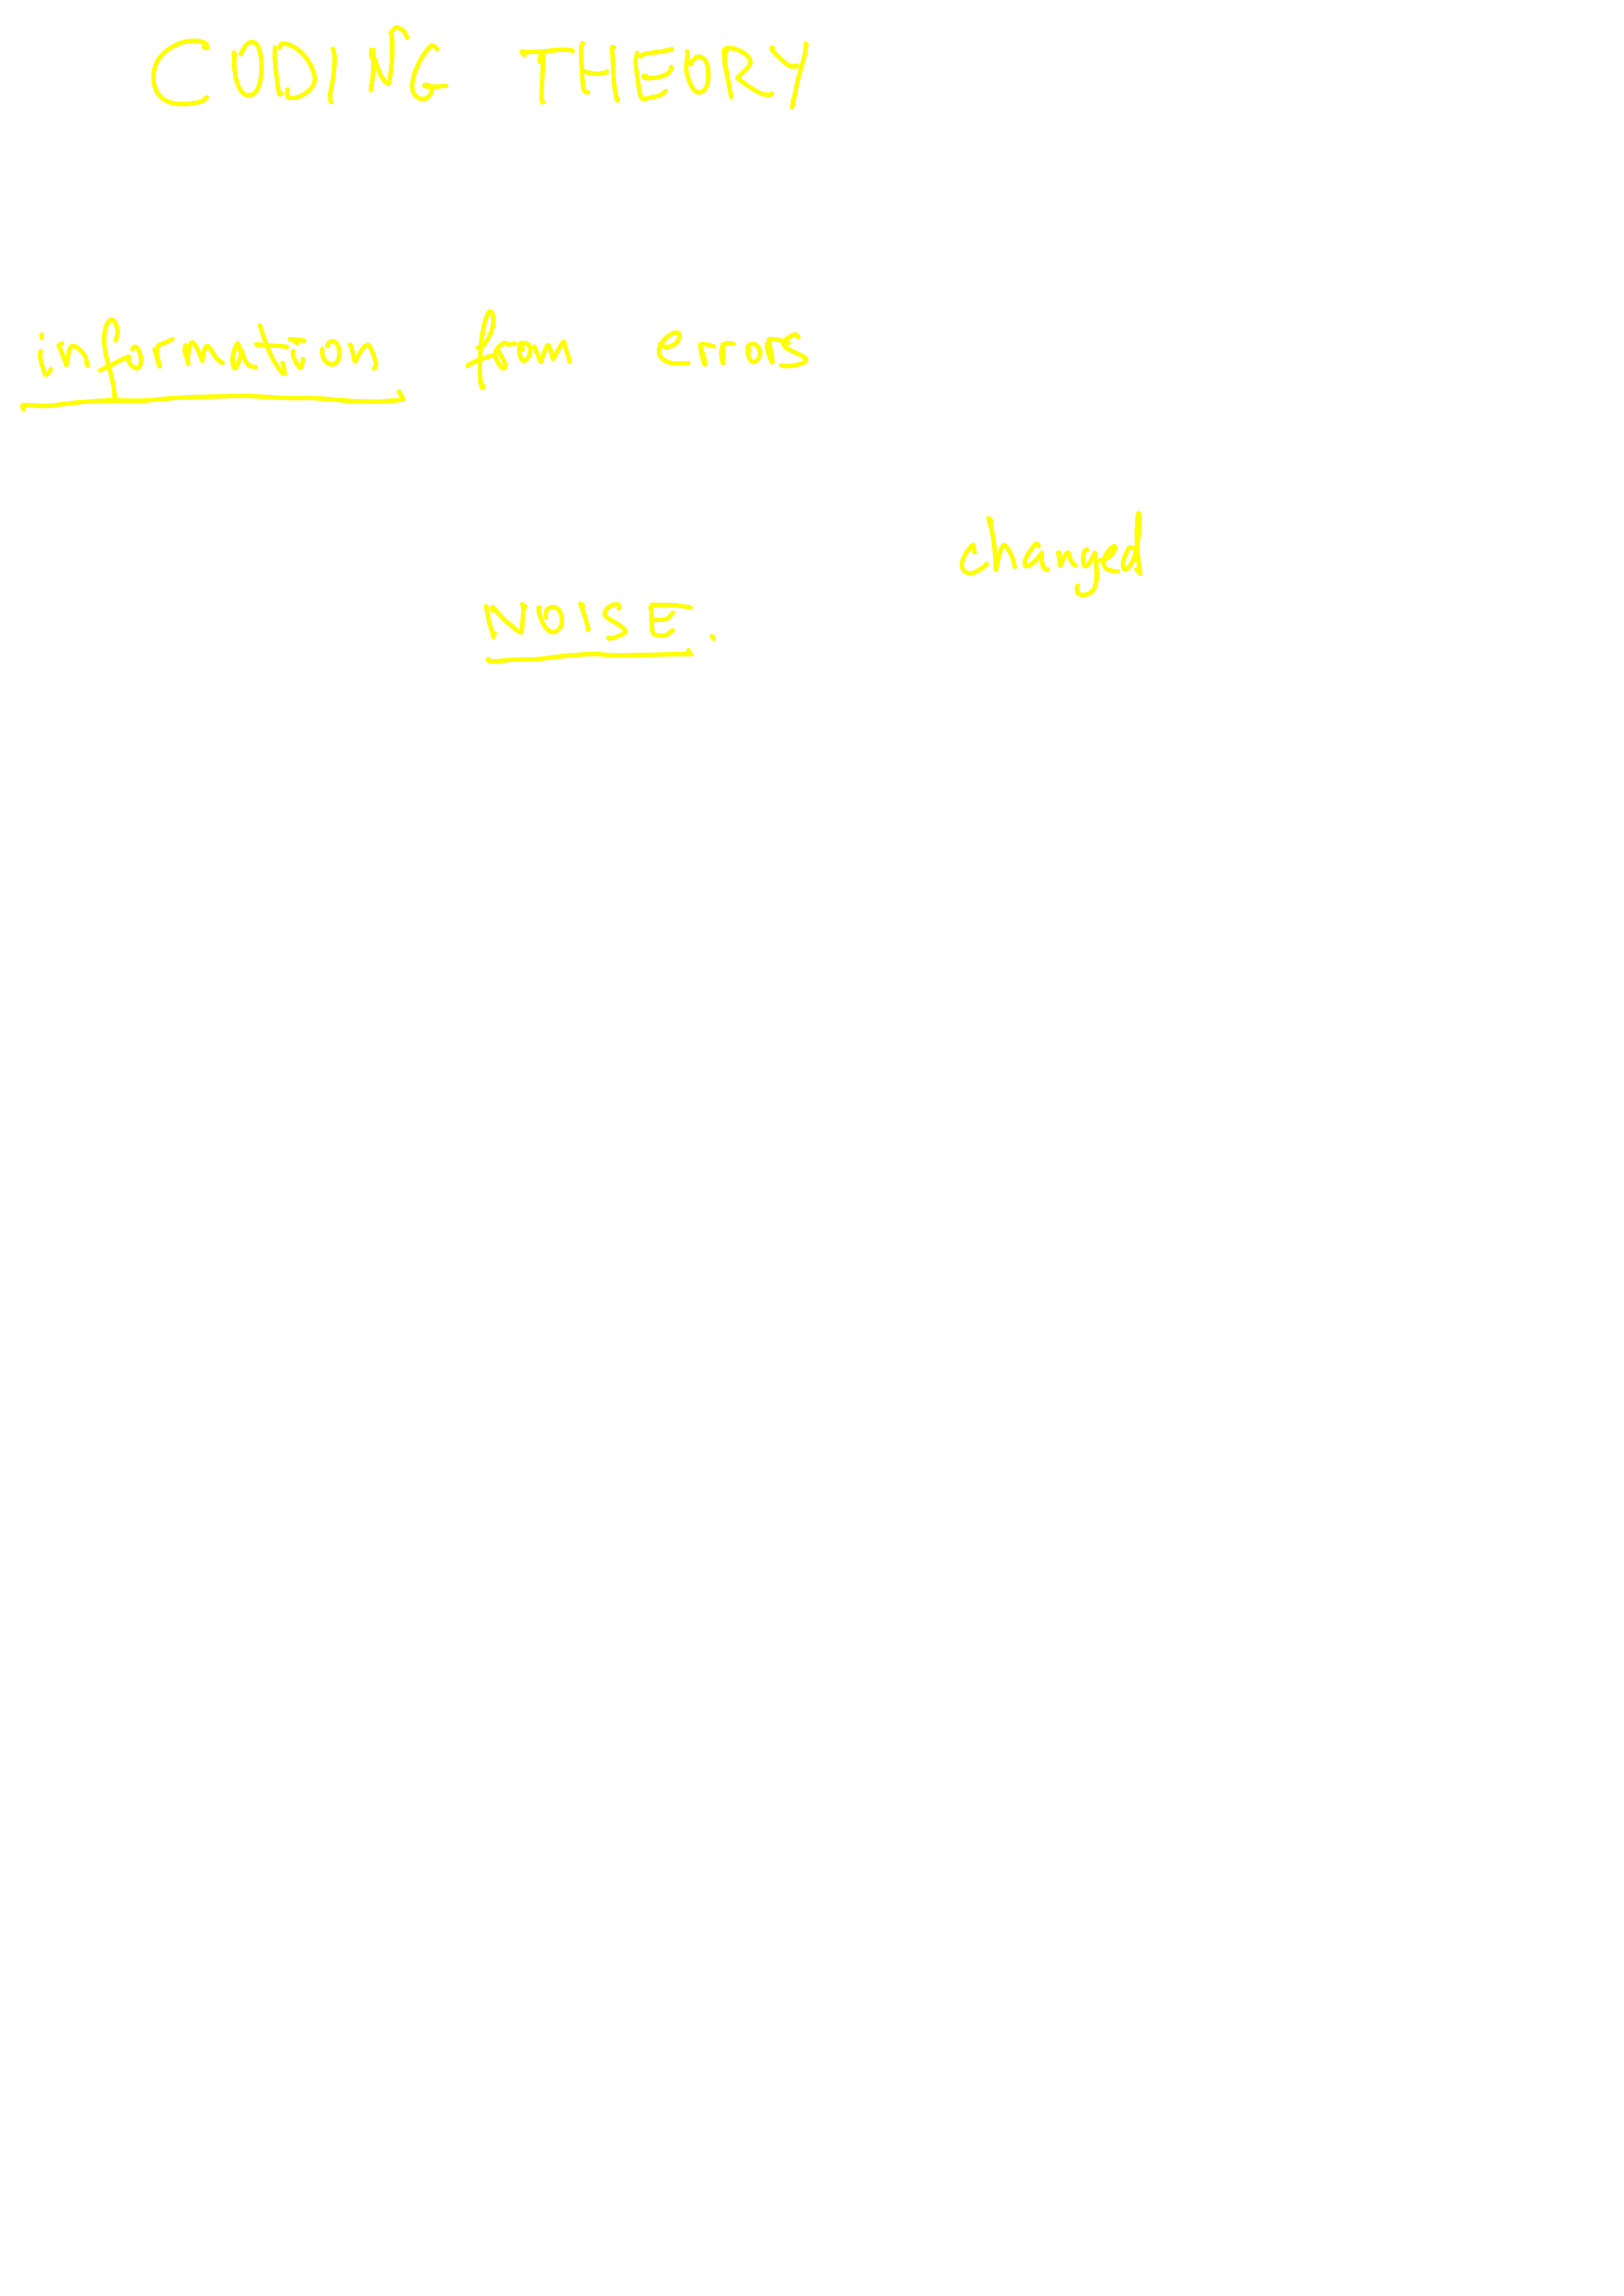 CODING THEORY
information from errors
changed
NOISE.